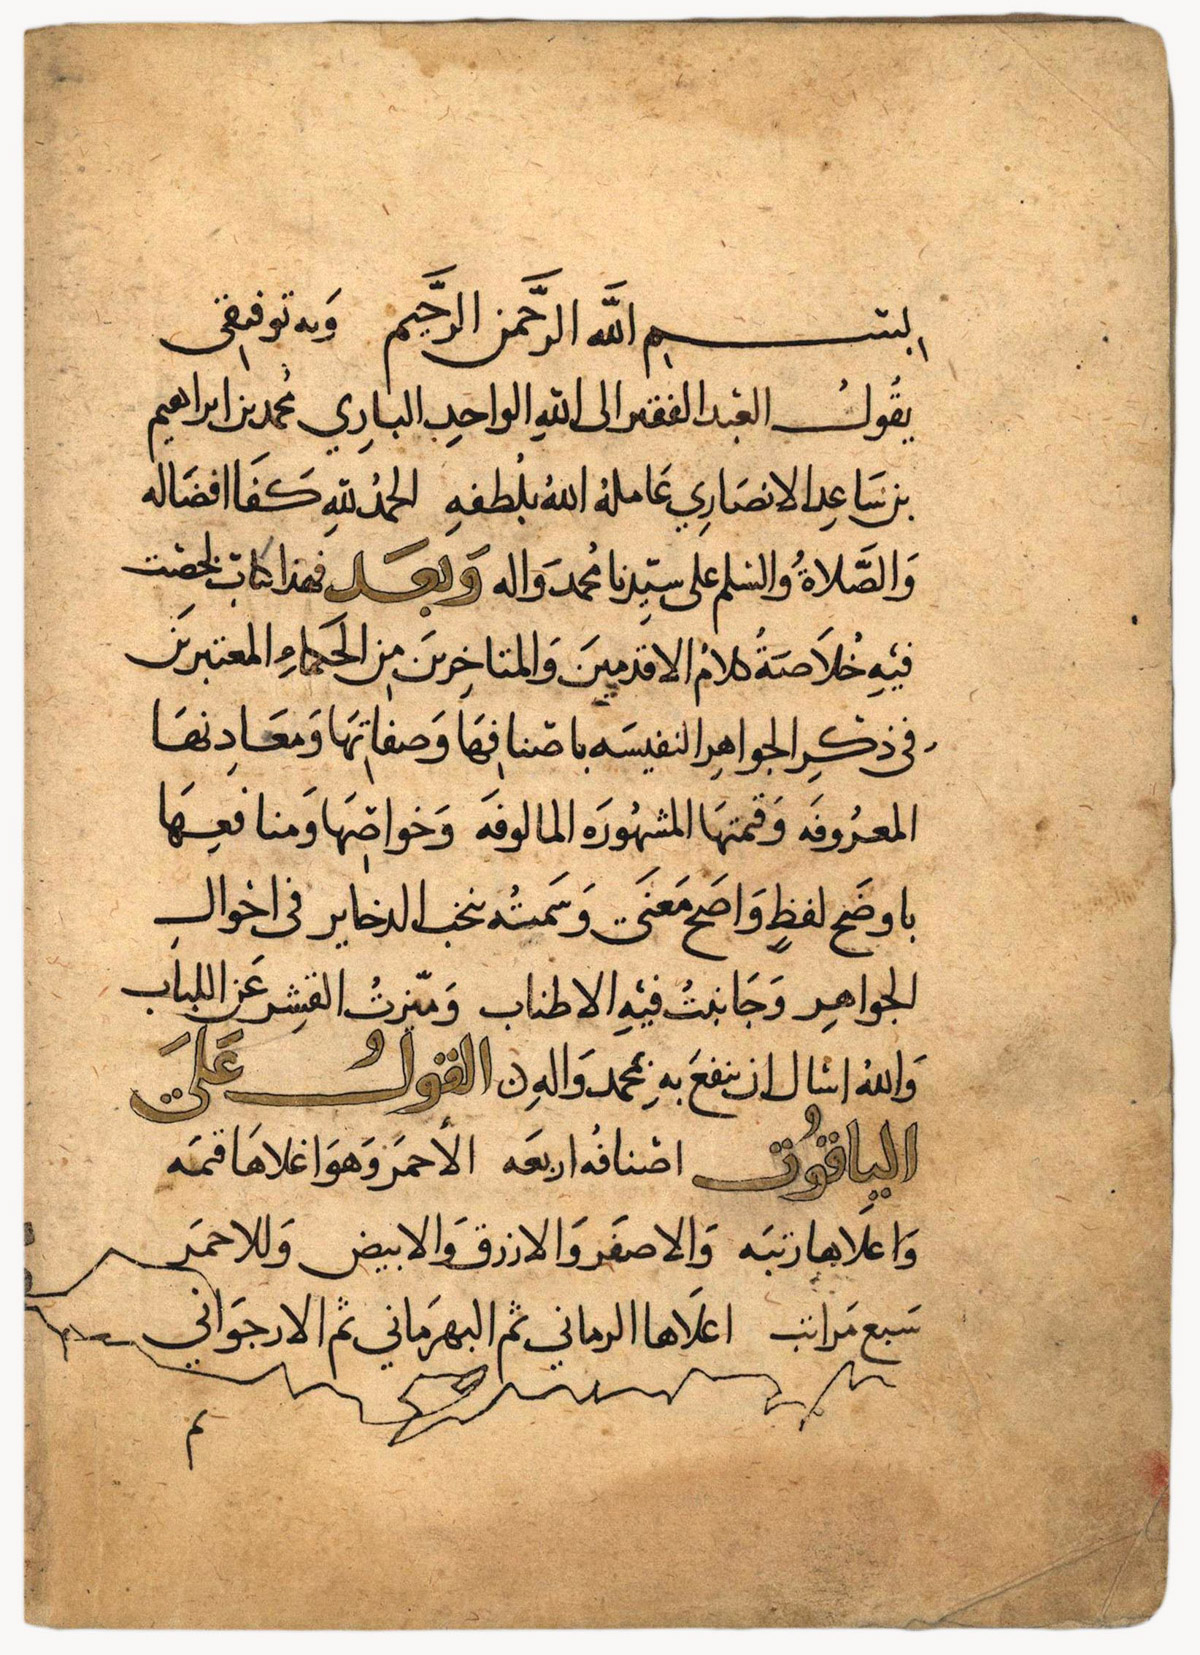 بسم الله الرحمن الرحيم وبه توفيقي
يقول العبد الفقير الى الله الواحد الباري محمد بن ابراهيم
بن ساعد الانصاري عامله الله بلطفه الحمد لله كفا افضاله
والصلاة والسلم على سيدنا محمد واله وبعد فهذا كتاب لخصت
فيه خلاصة كلام الاقدمين والمتاخرين من الحكماء المعتبرين
في ذكر الجواهر النفيسه باصنافها وصفاتها ومعادنها
المعروفه وقيمتها المشهوره المالوفه وخواصها ومنافعها
باوضح لفظ واصح معنى وسميته نخب الدخاير في احوال
الجواهر وجانبت فيه الاطناب وميزت القشر عن اللباب
والله اسال ان ينفع به بمحمد واله القول على
الياقوت اصنافه اربعه الأحمر وهو اغلاها قيمه
واعلاها رتبه والاصفر والازرق والابيض وللاحمر
سبع مراتب اعلاها الرماني ثم البهرماني ثم الارجواني